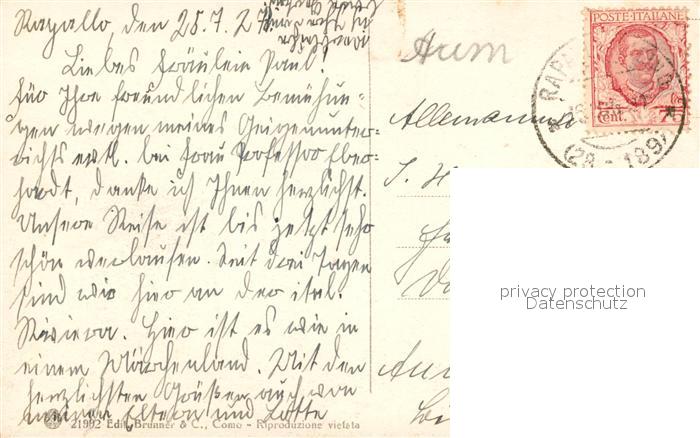 Rapallo, den 25.7.2
Liebes Fräulein Paul!
für Ihre freundlichen Bemühun-
gen wegen meines Geigenunter-
richts evtl. bei Frau Professor Eber-
hardt, danke ich Ihnen herzlichst.
Unsere Reise ist bis jetzt sehr
schön verlaufen. Seit drei Tagen
sind wir hier an der ital.
Riviera. Hier ist es wie in
einem Märchenland. Mit den
herzlichsten Grüßen auch von
meinen Eltern und Lotte
21992 Edit. Brunner & C., Como - Riproduzione vietata
POSTE·ITALIANE
Cent. 75
RAPA
(28 - 189)
Allemannia
S. H
privacy protection
Datenschutz